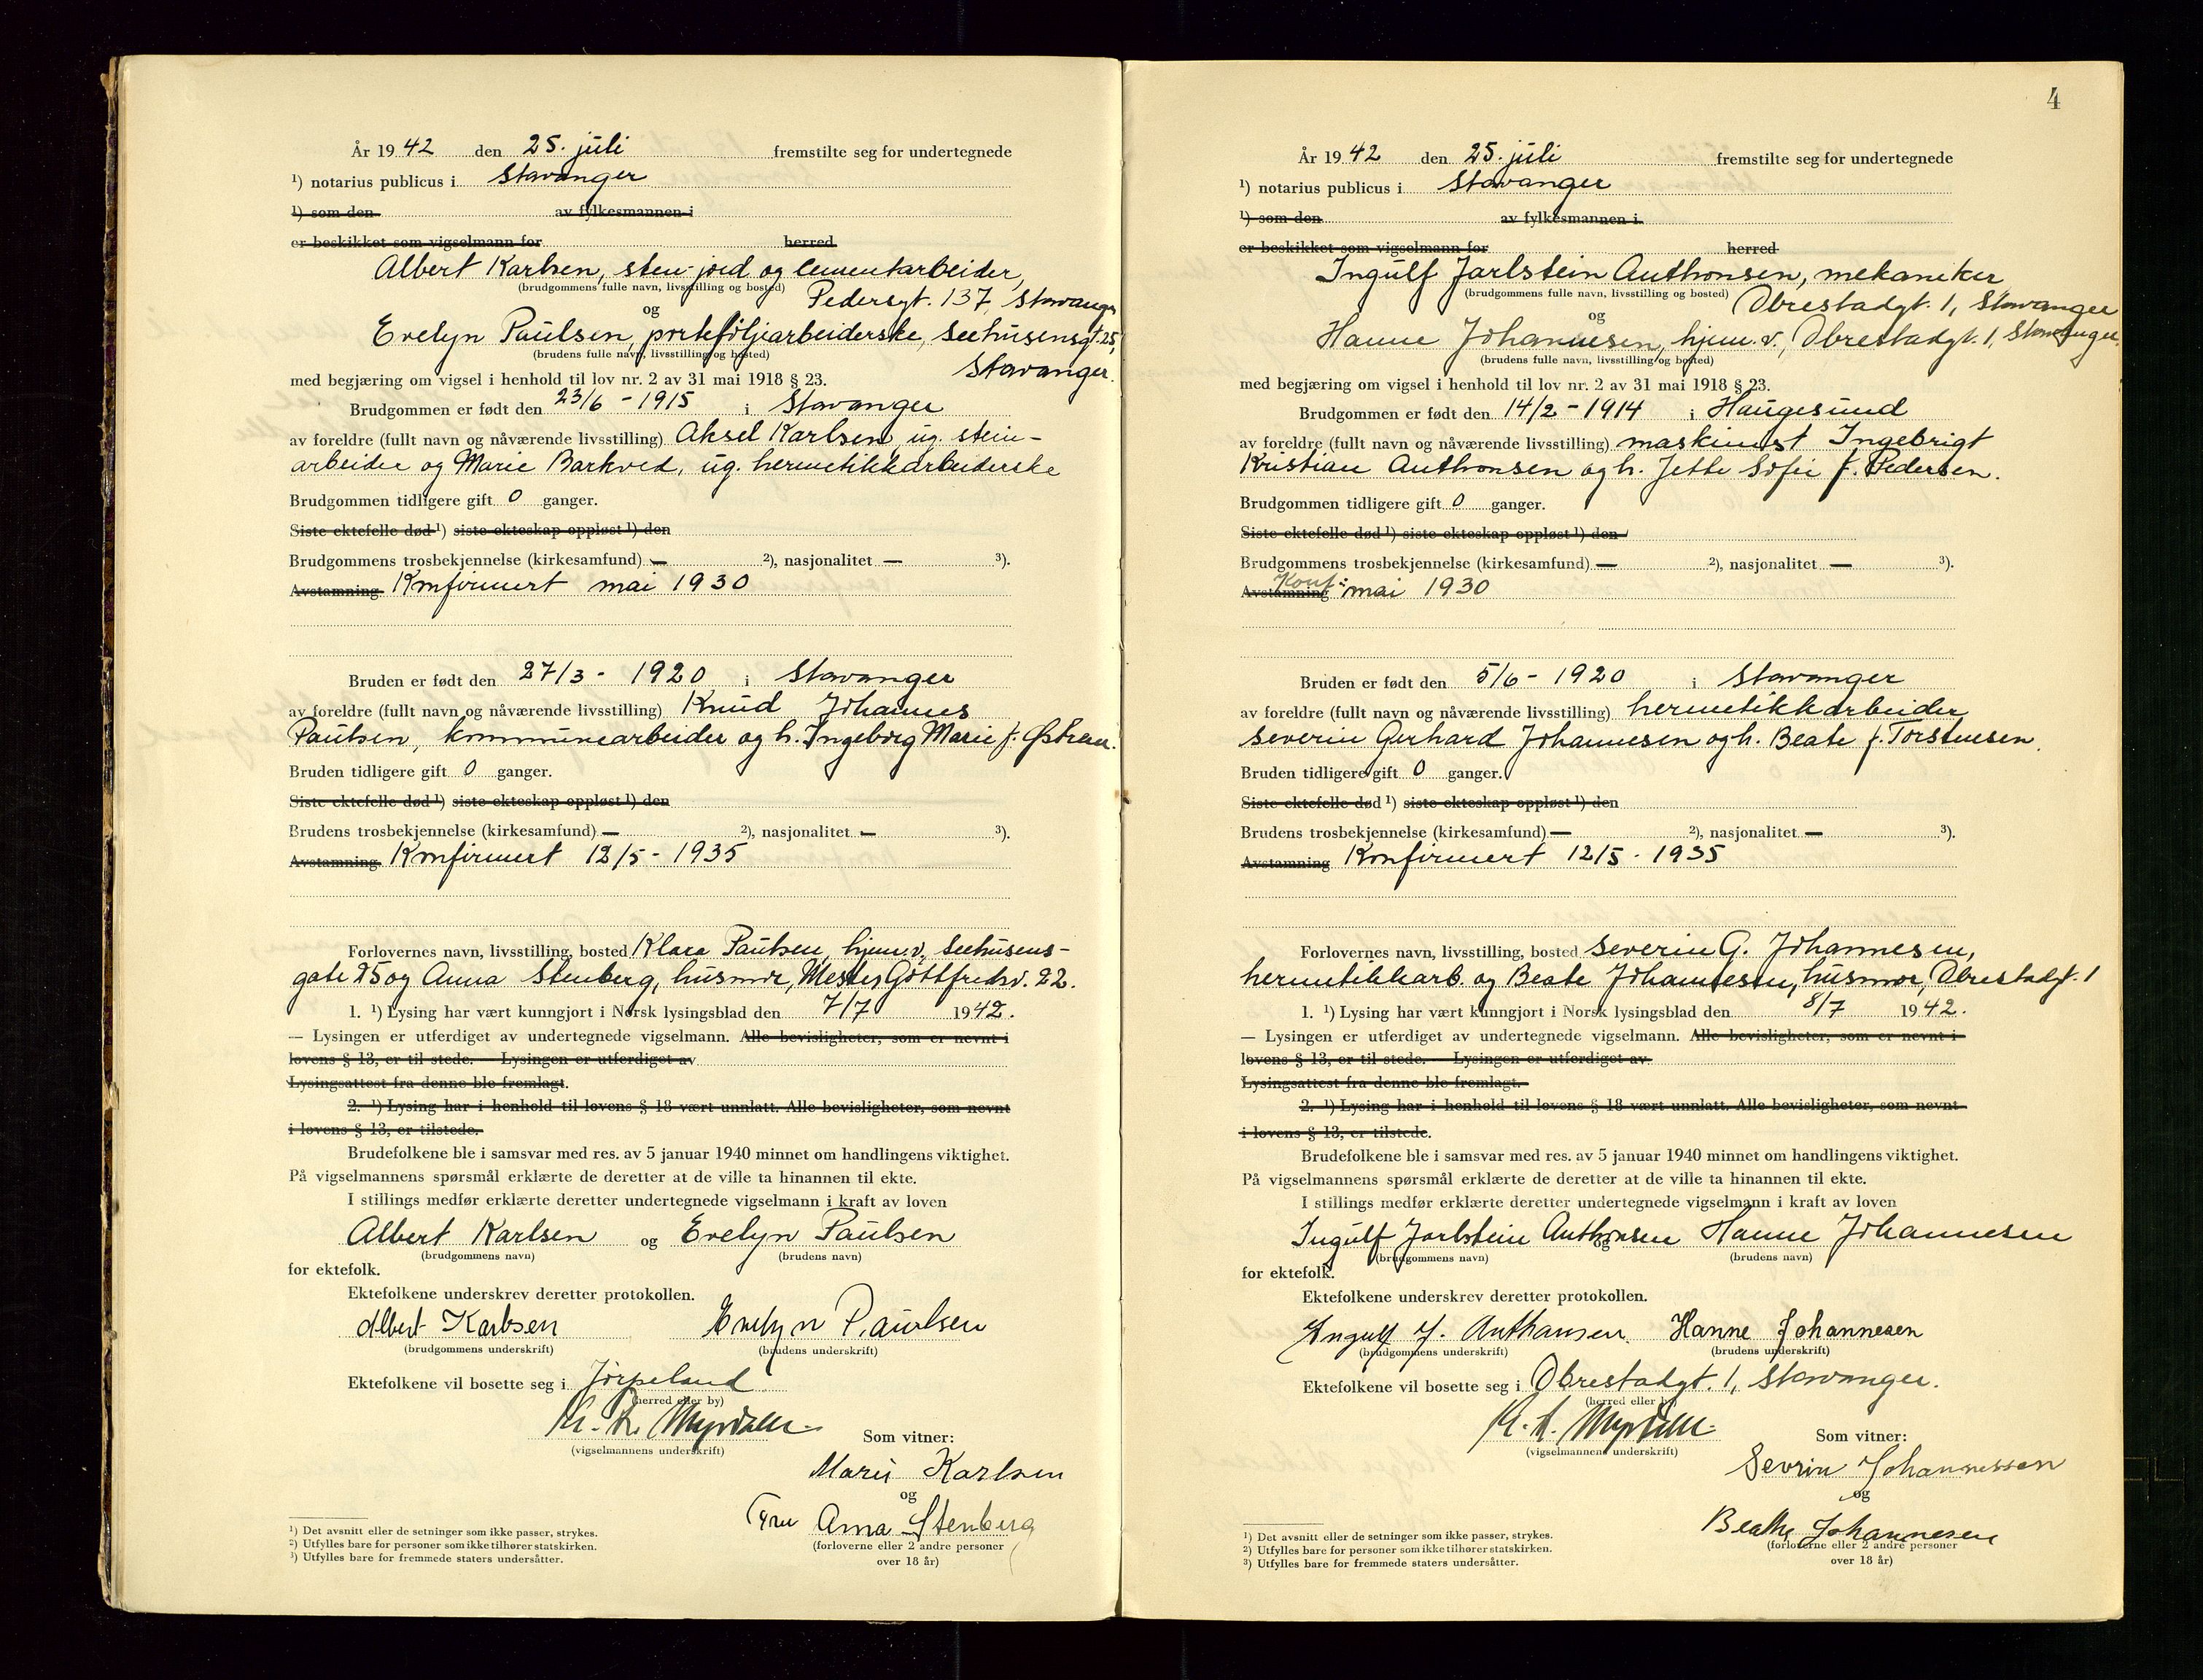 År 1942 den 25. juli fremstilte seg for undertegnede
¹) notarius publicus i Stavanger
¹) som den av fylkesmannen i
er beskikket som vigselmann for herred
Albert Karlsen, sten- jord og cementarbeider,
(brudgommens fulle navn, livsstilling og bosted) Pedersgt. 137, Stavanger
og
Evelyn Paulsen, porteføljearbeiderske, Seehusensgt. 25,
(brudens fulle navn, livsstilling og bosted)
Stavanger.
med begjæring om vigsel i henhold til lov nr. 2 av 31 mai 1918 § 23.
Brudgommen er født den 23/6 - 1915 i Stavanger
av foreldre (fullt navn og nåværende livsstilling) Aksel Karlsen, ug. stein-
arbeider og Marie Barkved, ug. hermetikkarbeiderske
Brudgommen tidligere gift 0 ganger.
Siste ektefelle død ¹) siste ekteskap oppløst ¹) den
Brudgommens trosbekjennelse (kirkesamfund) — ²), nasjonalitet — ³).
Avstamning Konfirmert mai 1930
Bruden er født den 27/3 - 1920 i Stavanger
av foreldre (fullt navn og nåværende livsstilling) Knud Johannes
Paulsen, kommunearbeider og h. Ingeborg Marie f. Østrem.
Bruden tidligere gift 0 ganger.
Siste ektefelle død ¹) siste ekteskap oppløst ¹) den
Brudens trosbekjennelse (kirkesamfund) — ²), nasjonalitet — ³).
Avstamning Konfirmert 12/5 - 1935
Forlovernes navn, livsstilling, bosted Klara Paulsen, hjem.v., Seehusens-
gate 25 og Anna Stenberg, husmor, Mester Gottfredsv. 22.
1. ¹) Lysing har vært kunngjort i Norsk lysingsblad den 7/7 1942.
— Lysingen er utferdiget av undertegnede vigselmann. Alle bevisligheter, som er nevnt i
lovens § 13, er til stede. — Lysingen er utferdiget av
Lysingsattest fra denne ble fremlagt.
2. ¹) Lysing har i henhold til lovens § 18 vært unnlatt. Alle bevisligheter, som nevnt
i lovens § 13, er tilstede.
Brudefolkene ble i samsvar med res. av 5 januar 1940 minnet om handlingens viktighet.
På vigselmannens spørsmål erklærte de deretter at de ville ta hinannen til ekte.
I stillings medfør erklærte deretter undertegnede vigselmann i kraft av loven
Albert Karlsen og Evelyn Paulsen
(brudgommens navn) (brudens navn)
for ektefolk.
Ektefolkene underskrev deretter protokollen.
Albert Karlsen Evelyn Paulsen
(brudgommens underskrift) (brudens underskrift)
Ektefolkene vil bosette seg i Jørpeland
(herred eller by)
(vigselmannens underskrift)
Som vitner:
Marie Karlsen
og
Fru Anna Stenberg
(forloverne eller 2 andre personer
over 18 år)
¹) Det avsnitt eller de setninger som ikke passer, strykes.
²) Utfylles bare for personer som ikke tilhører statskirken.
³) Utfylles bare for fremmede staters undersåtter.
4
År 1942 den 25. juli fremstilte seg for undertegnede
¹) notarius publicus i Stavanger
¹) som den av fylkesmannen i
er beskikket som vigselmann for herred
Ingulf Jarlstein Anthonsen, mekaniker
(brudgommens fulle navn, livsstilling og bosted) Obrestadgt. 1, Stavanger
og
Hanne Johannesen, hjem. v., Obrestadgt. 1, Stavanger.
(brudens fulle navn, livsstilling og bosted)
med begjæring om vigsel i henhold til lov nr. 2 av 31 mai 1918 § 23.
Brudgommen er født den 14/2 - 1914 i Haugesund
av foreldre (fullt navn og nåværende livsstilling) maskinist Ingebrigt
Kristian Anthonsen og h. Jette Sofie f. Pedersen.
Brudgommen tidligere gift 0 ganger.
Siste ektefelle død ¹) siste ekteskap oppløst ¹) den
Brudgommens trosbekjennelse (kirkesamfund) — ²), nasjonalitet — ³).
Avstamning Konf: mai 1930
Bruden er født den 5/6 - 1920 i Stavanger
av foreldre (fullt navn og nåværende livsstilling) hermetikkarbeider
Severin Gerhard Johannesen og h. Beate f. Torstensen.
Bruden tidligere gift 0 ganger.
Siste ektefelle død ¹) siste ekteskap oppløst ¹) den
Brudens trosbekjennelse (kirkesamfund) — ²), nasjonalitet — ³).
Avstamning Konfirmert 12/5 - 1935
Forlovernes navn, livsstilling, bosted Severin G. Johannesen,
hermetikkarb. og Beate Johannesen, husmor, Obrestadgt. 1
1. ¹) Lysing har vært kunngjort i Norsk lysingsblad den 8/7 1942.
— Lysingen er utferdiget av undertegnede vigselmann. Alle bevisligheter, som er nevnt i
lovens § 13, er til stede. — Lysingen er utferdiget av
Lysingsattest fra denne ble fremlagt.
2. ¹) Lysing har i henhold til lovens § 18 vært unnlatt. Alle bevisligheter, som nevnt
i lovens § 13, er tilstede.
Brudefolkene ble i samsvar med res. av 5 januar 1940 minnet om handlingens viktighet.
På vigselmannens spørsmål erklærte de deretter at de ville ta hinannen til ekte.
I stillings medfør erklærte deretter undertegnede vigselmann i kraft av loven
Ingulf Jarlstein Anthonsen og Hanne Johannesen
(brudgommens navn) (brudens navn)
for ektefolk.
Ektefolkene underskrev deretter protokollen.
Ingulf J. Anthonsen. Hanne Johannesen
(brudgommens underskrift) (brudens underskrift)
Ektefolkene vil bosette seg i Obrestadgt. 1, Stavanger.
(herred eller by)
(vigselmannens underskrift)
Som vitner:
Sevrin Johannessen
og
Beathe Johannesen
(forloverne eller 2 andre personer
over 18 år)
¹) Det avsnitt eller de setninger som ikke passer, strykes.
²) Utfylles bare for personer som ikke tilhører statskirken.
³) Utfylles bare for fremmede staters undersåtter.